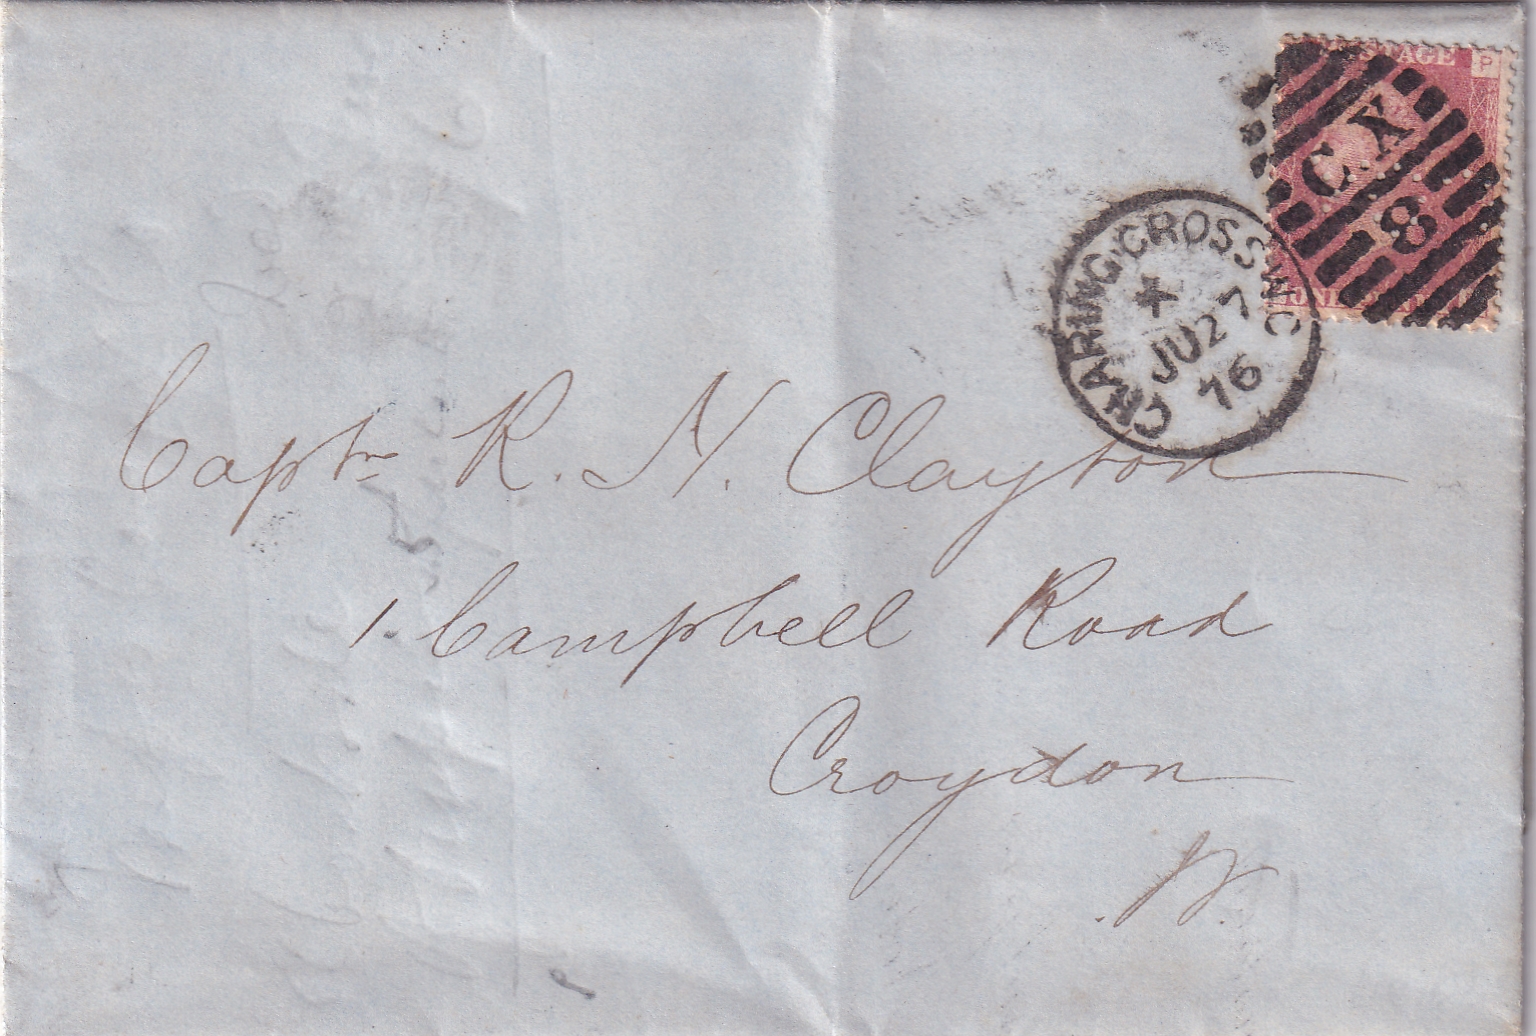 POSTAGE
P
C.X
8
CHARING·CROSS·W.C
X
JU 27
76
Captn R. N. Clayton
1 Campbell Road
Croydon
W.